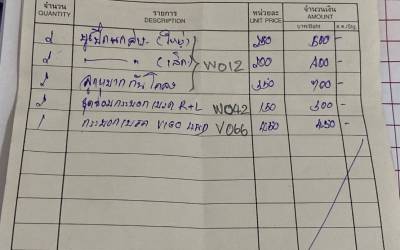 จำนวน รายการ หน่วยละ จำนวนเงิน
QUANTITY DESCRIPTION UNIT PRICE AMOUNT
บาท/Baht ส.ต./Stg.
2 250 500 -
2 (เล็ก) W012 200 400 -
2 ลูกหมากกันโคลง 350 700 -
2 ชุดซ่อมกระบอกเบรค R+L W042 150 300 -
1 กระบอกเบรค VIGO 4WD V066 450 450 -